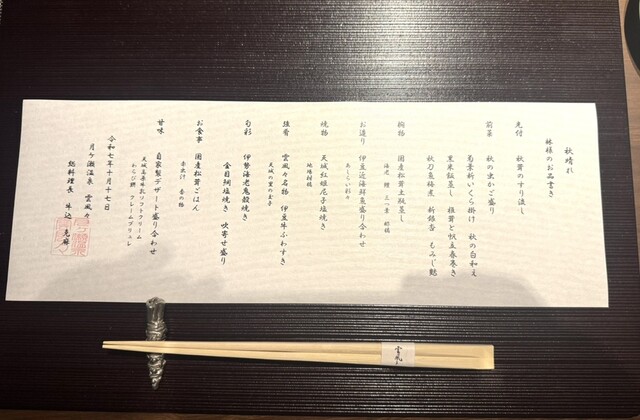 秋晴れ
様のお品書き
先付 秋茸のすり流し
前菜 秋の虫かご盛り
菊菜浸しいくら掛け 秋の白和え
里米飯蒸し 椎茸と帆立春巻き
秋刀魚梅煮 新銀杏 もみじ麩
椀物 国産松茸土瓶蒸し
海老 鱧 三つ葉 酢橘
お造り 伊豆近海鮮魚盛り合わせ
あしらい彩々
焼物 天城紅姫尼子塩焼き
地場柑橘
強肴 雲風々名物 伊豆牛ふわすき
天城の里の玉子
旬彩 伊勢海老鬼殻焼き
金目阿塩焼き 吹寄せ盛り
お食事 国産松茸ごはん
赤出汁 香の物
甘味 自家製デザート盛り合わせ
天城高原牛乳ソフトクリーム
わらび餅 クレームブリュレ
令和七年十月十七日
月ヶ瀬温泉 雲風々
総料理長 牛込